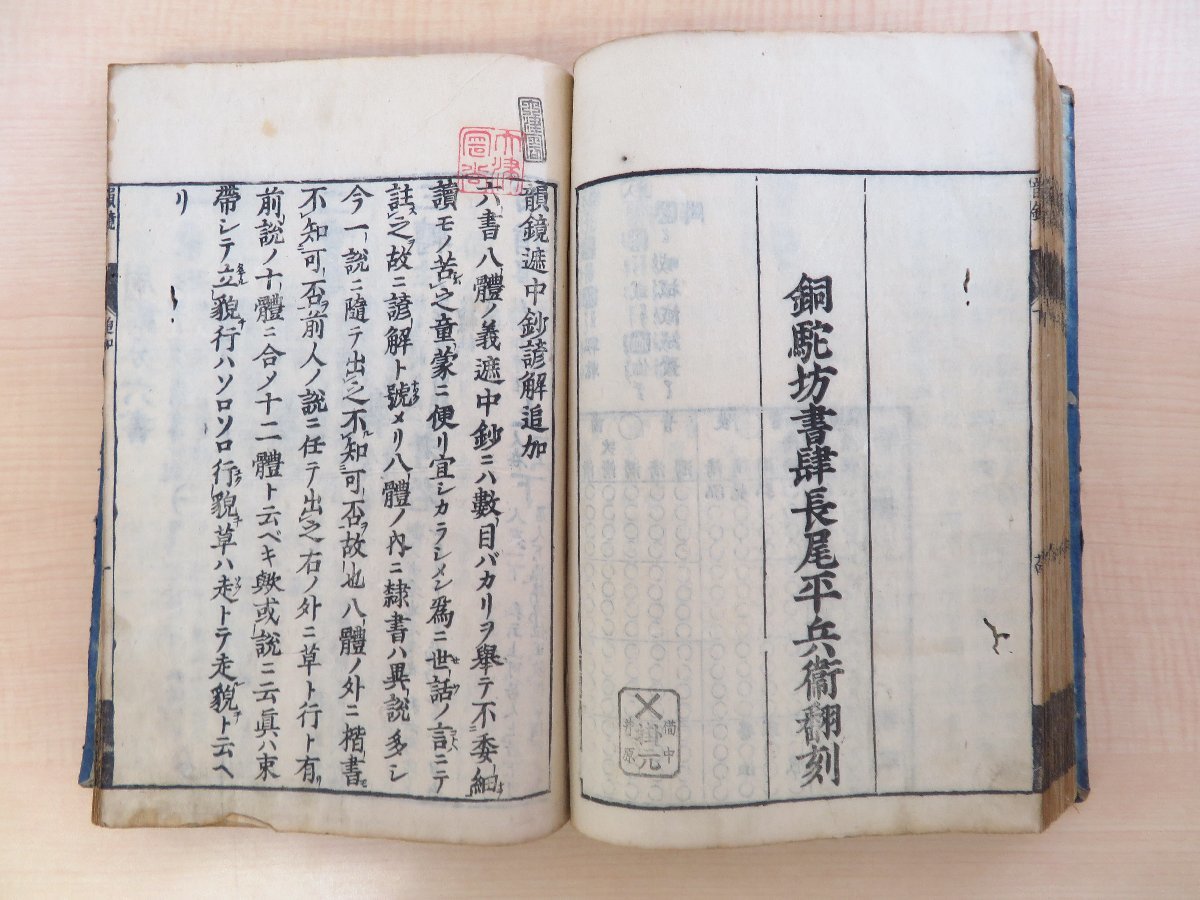 銅駝坊書肆長尾平兵衞翻刻
備中
掛元
韻鏡遮中鈔諺解追加
六書八體ノ義遮中鈔ニハ數目バカリヲ舉テ不委細
讀モノ苦之童蒙ニ便リ宜シカラシメン爲ニ世話ノ言ニテ
註之故ニ諺解ト號メリ八體ノ内ニ隸書ハ異說多シ
今一說ニ隨テ出之不知可否故也八體ノ外ニ楷書
不知可否前人ノ說ニ任テ出之右ノ外ニ草ト行ト有
前說ノ十體ニ合メ十二體ト云ベキ歟或說ニ云眞ハ束
帶シテ立貌行ハソロソロ行貌草ハ走トテ走貌ト云ヘ
リ
韻鏡
追加